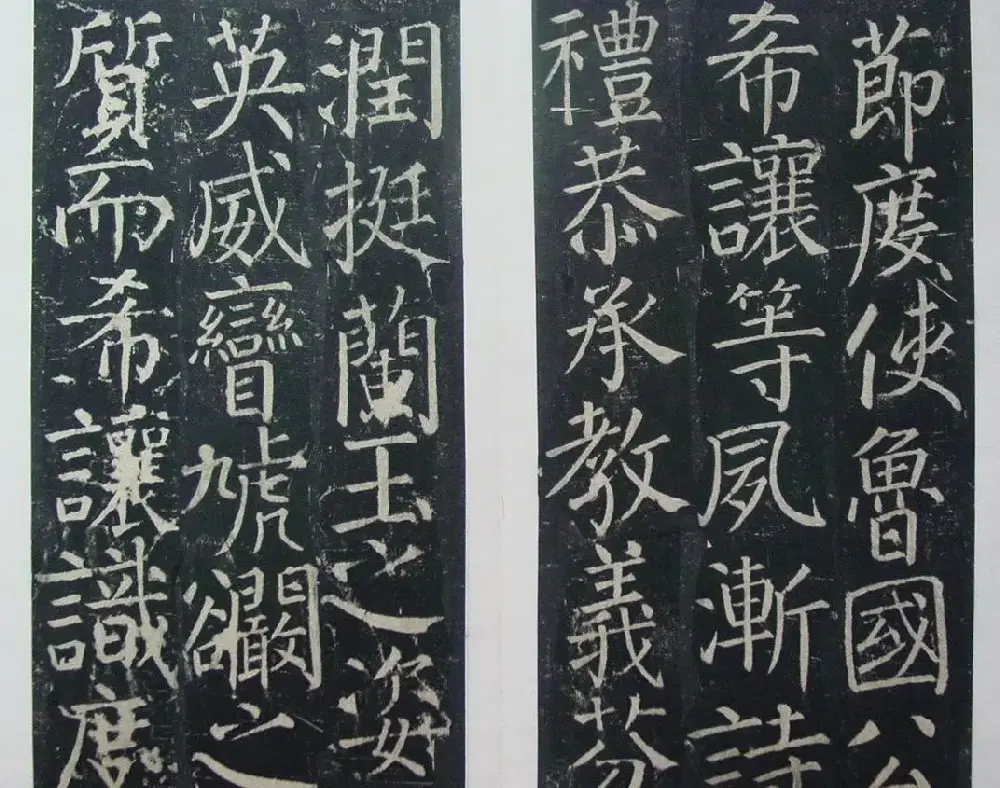 節度使魯國公
希讓等夙漸詩
禮恭承教義芬
潤挺蘭玉之姿
英威矕虓之
質而希讓識度